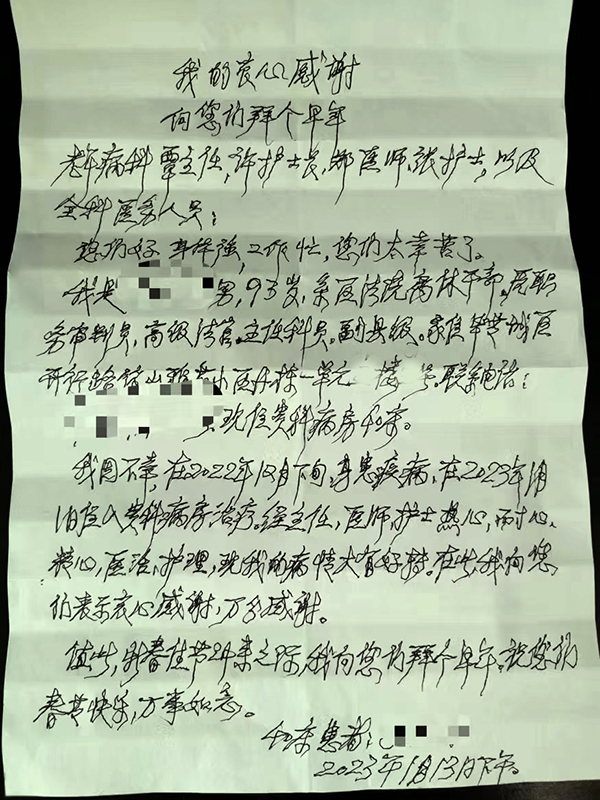 我的衷心感谢
向您们拜个早年
老年病科覃主任,许护士长,郑医师,张护士,以及
全科医务人员:
您们好 身体强,工作忙,您们太幸苦了。
我是 男,93岁,系区法院离休干部。原职
务审判员,高级法官。主任科员。副县级。家住
开行路 山 小区 栋一单元 楼 号。联系电话:
现住贵科病房 床。
我因不幸,在2022年12月下旬,身患疾病,在2023年1月
1日住入贵科病房治疗。经主任,医师,护士热心,耐心,
精心,医治,护理,现我的病情大有好转。在此我向您
们表示衷心感谢,万分感谢。
值此,新春佳节 来之际,我向您们拜个早年。祝您们
春节快乐,万事如意。
床患者:
2023年1月13日下午。